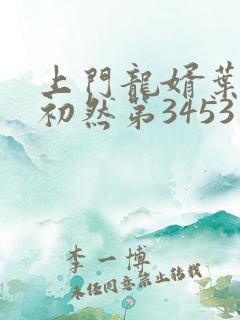 上門龍婿葉
初然第3453
李一博
未经同意禁止转载